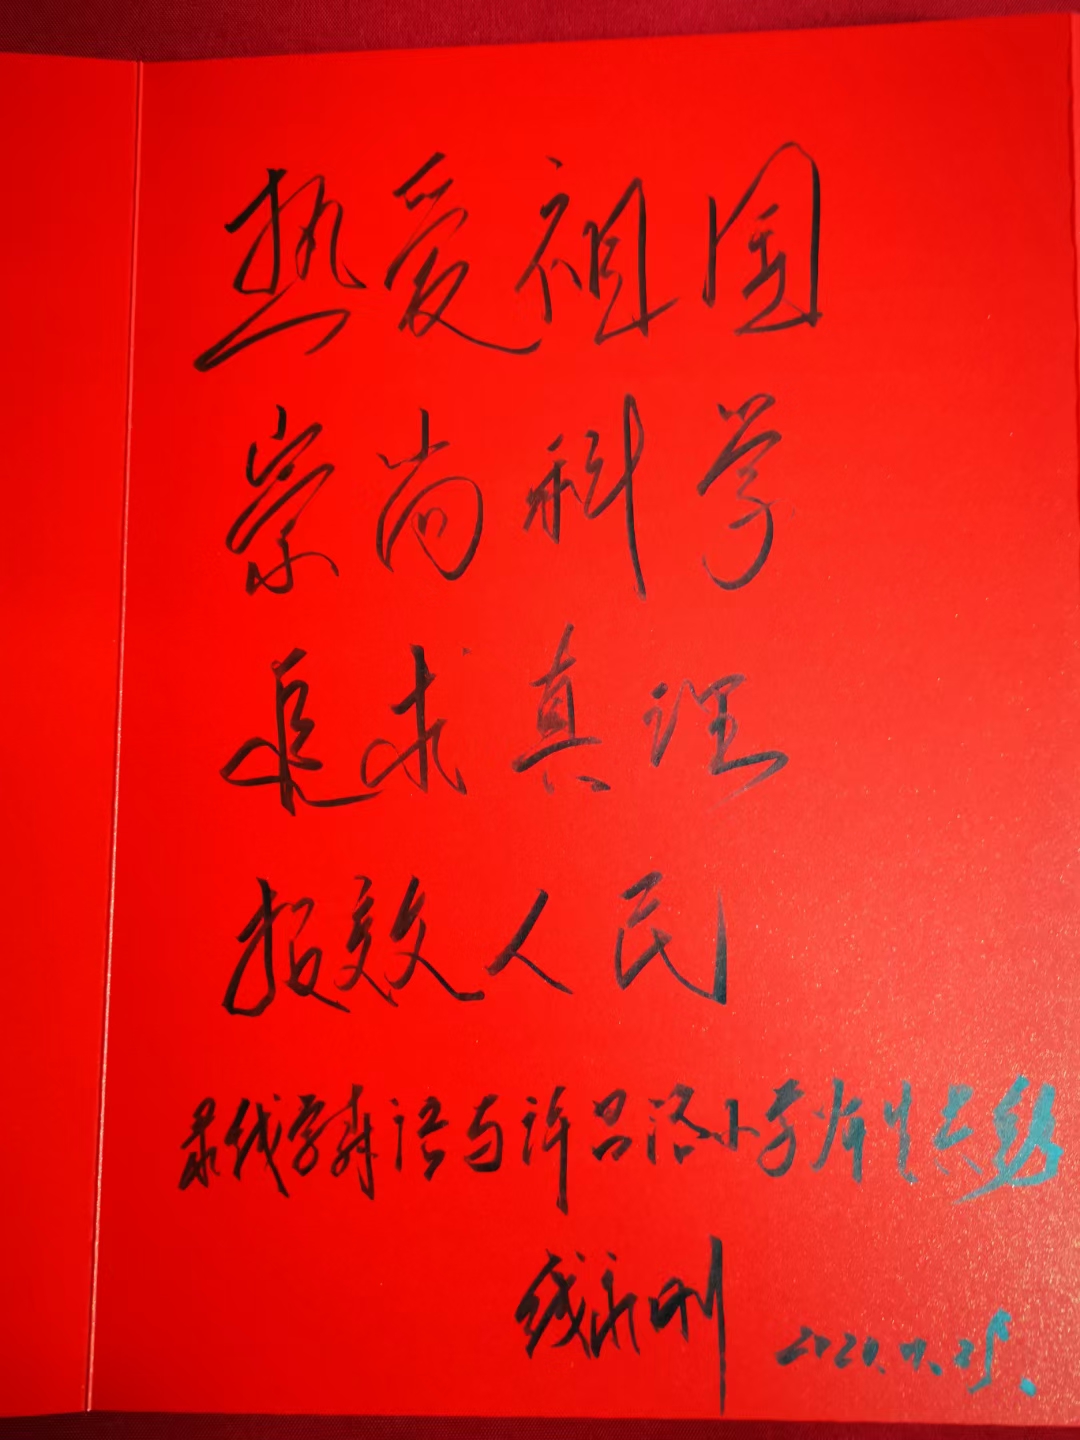 热爱祖国
崇尚科学
追求真理
报效人民
录钱学森语与许吕洛小学师生共勉
钱永刚
2020.11.25.